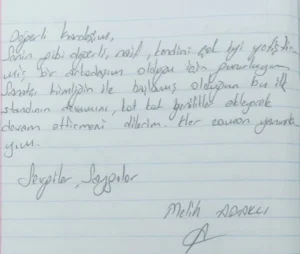 Değerli kardeşim,
Senin gibi değerli, naif, kendini çok iyi yetiştir-
miş bir arkadaşım olduğu için gururluyum
Sanat ile başlamış olduğun bu ilk
standının devamını, kat kat ekleyerek
devam ettirmeni dilerim. Her zaman yanında-
yım.
Sevgiler, Saygılar
Melih ADAKLI